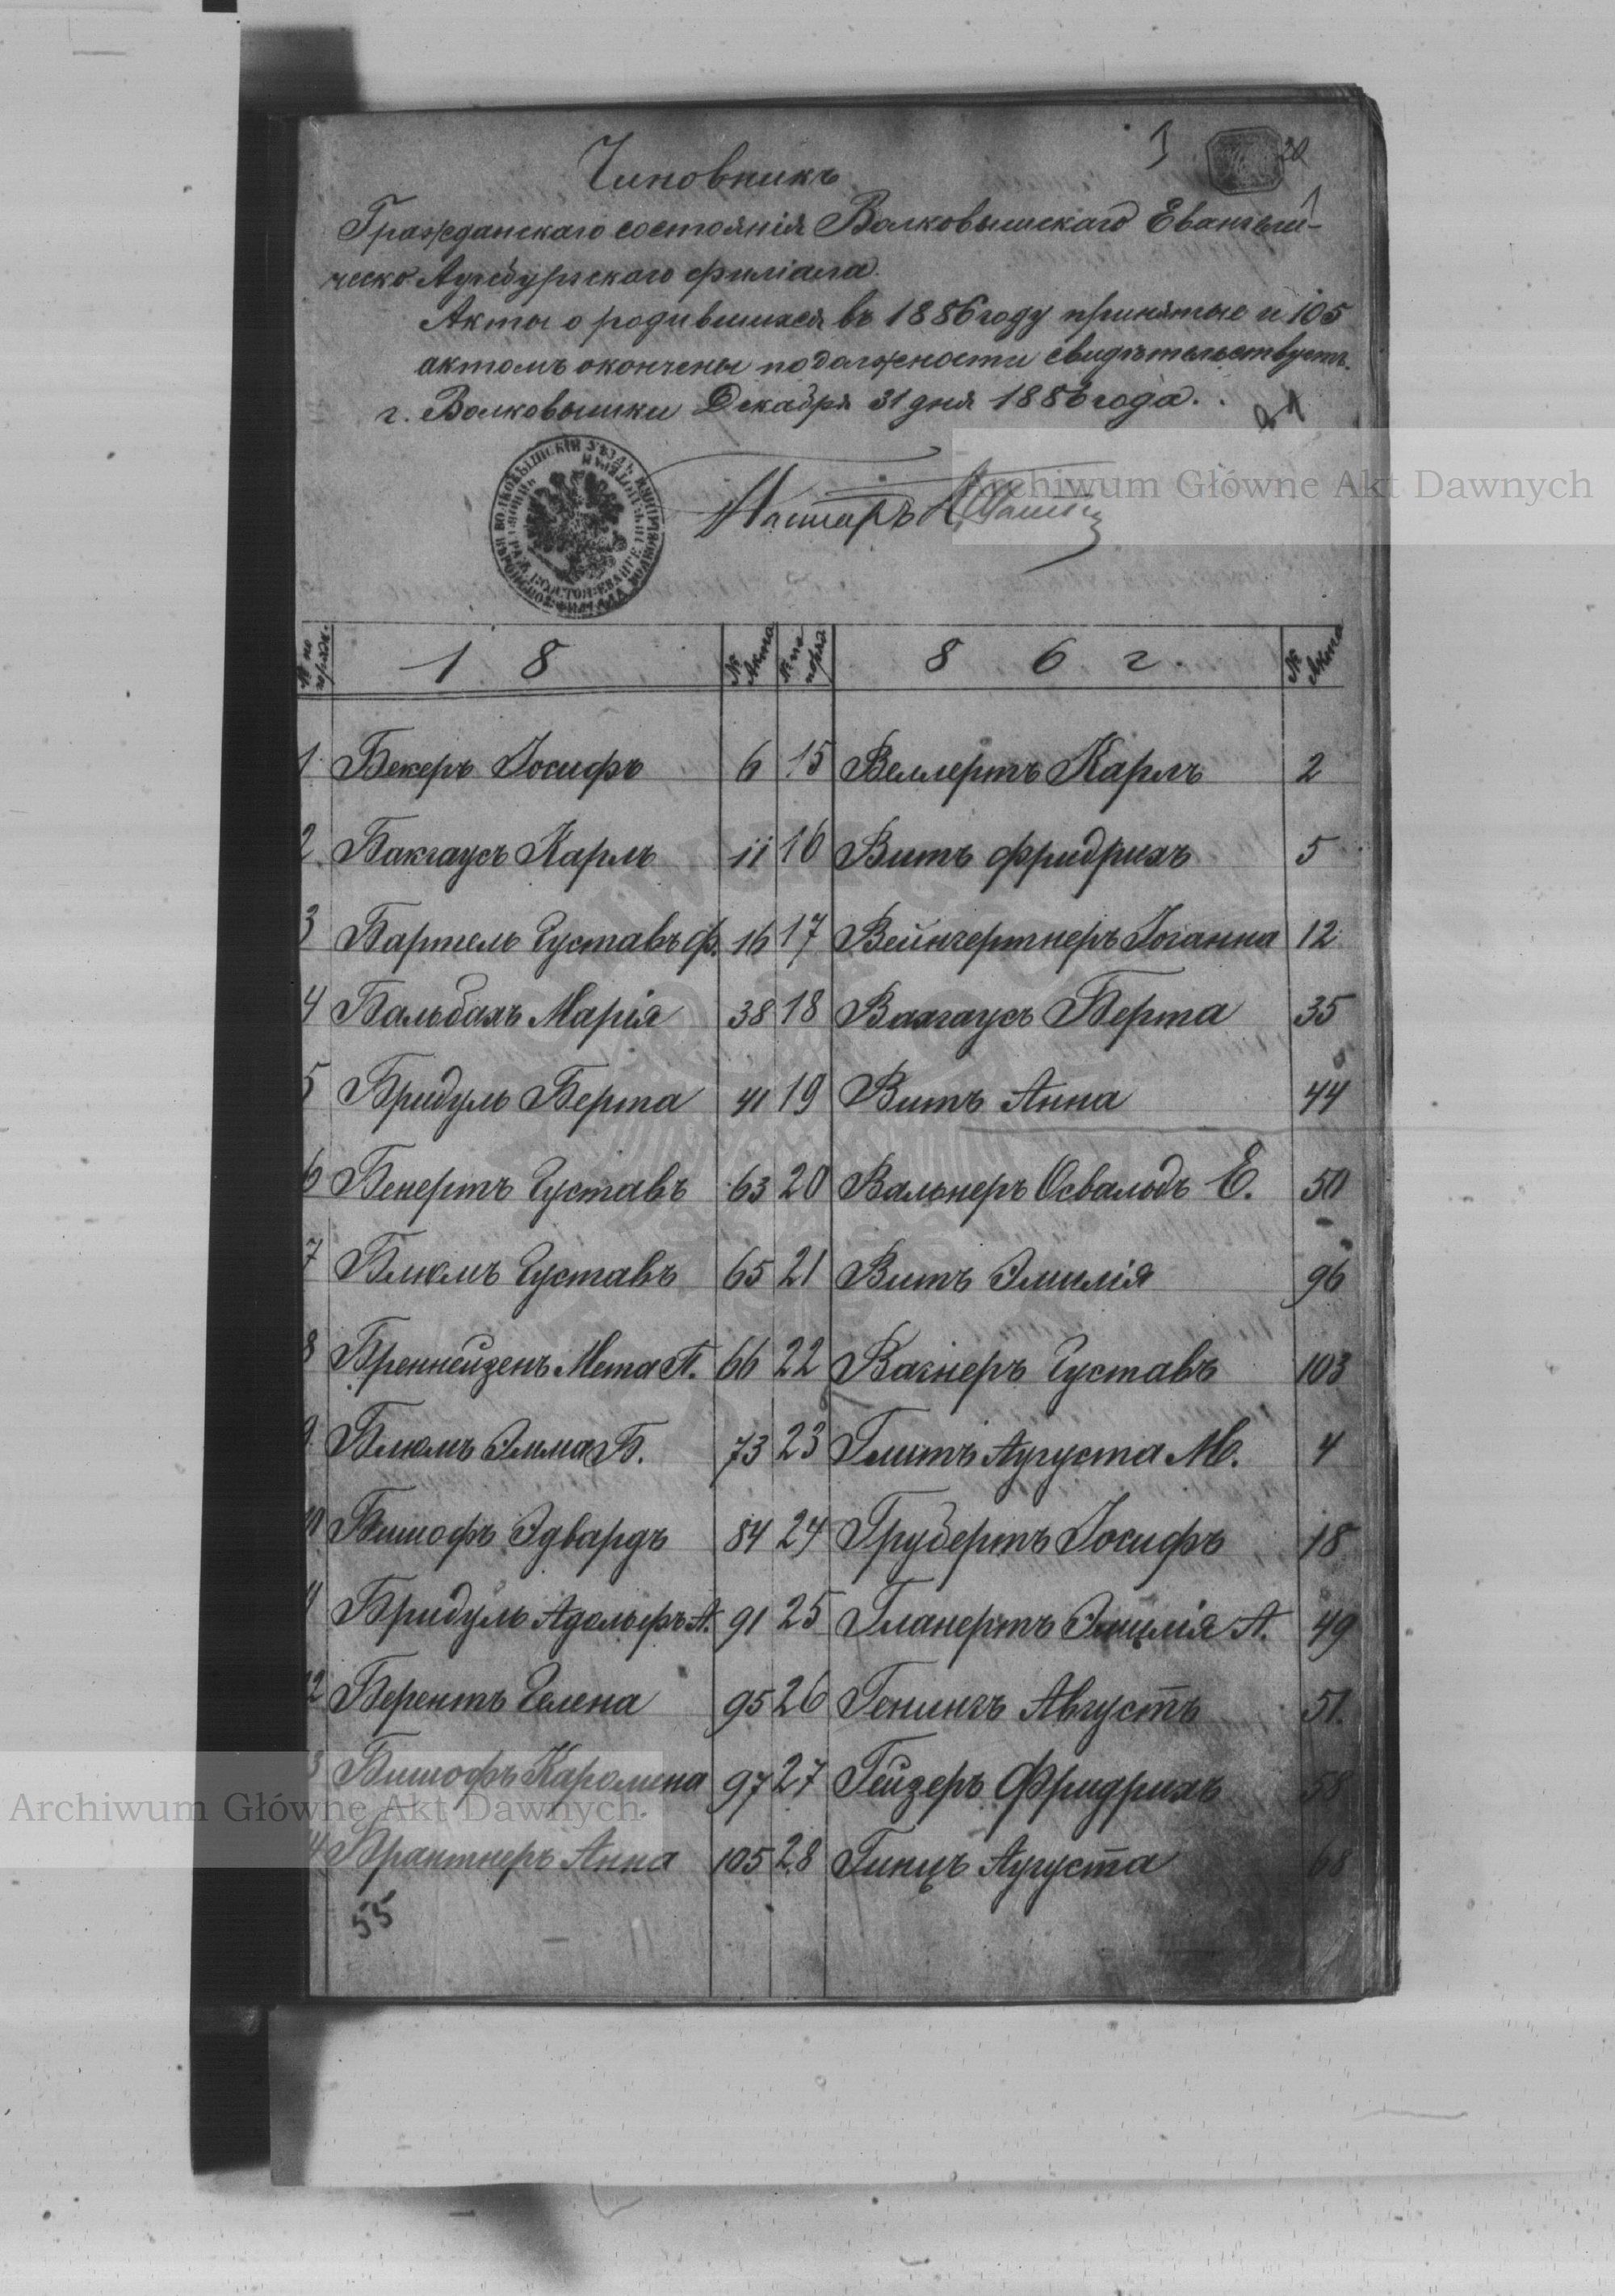 1 20
Чиновникъ
1
Гражданскаго состоянія Волковышскаго Евангели-
ческо Аугсбургскаго филіала.
Акты о родившихся въ 1886 году принятые и 105
актомъ окончены подолжности свидѣтельствуетъ.
г. Волковышки Декабря 31 дня 1886 года.
Archiwum Główne Akt Dawnych
Пасторъ
№ по порядк. 1 8 № Акта № по поряд 8 6 г. № Акта
1 Бекеръ Іосифъ 6 15 Веллертъ Карлъ 2
2 Бакгаусъ Карлъ 11 16 Витъ Фридрихъ 5
3 Бартель Густавъ Ф. 16 17 Вейнгертнеръ Іоганна 12
4 Бальбахъ Марія 38 18 Вахгаусъ Берта 35
5 Бридуль Берта 41 19 Витъ Анна 44
6 Бенертъ Густавъ 63 20 Вальнеръ Освальдъ Е. 50
7 Блюмъ Густавъ 65 21 Витъ Эмилія 96
8 Бреннейзенъ Мета П. 66 22 Вагнеръ Густавъ 103
9 Блюмъ Эмма Б. 73 23 Глитъ Аугуста М. 4
10 Бишофъ Эдвардъ 84 24 Грубертъ Іосифъ 18
11 Бридуль Адольфъ А. 91 25 Гланертъ Эмилія А. 49
12 Берентъ Гелена 95 26 Генингъ Августъ 51.
13 Бишофъ Каролина 97 27 Гейзеръ Фридрихъ 58
Archiwum Główne Akt Dawnych
14 Брантнеръ Анна 105 28 Гинцъ Аугуста 68
55